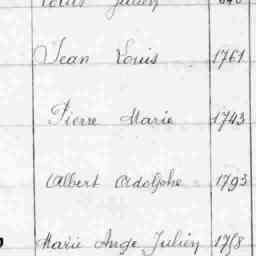 Louis Julien 1840
Jean Louis 1761
Pierre Marie 1743
Albert Adolphe 1793
Marie Ange Julien 1758